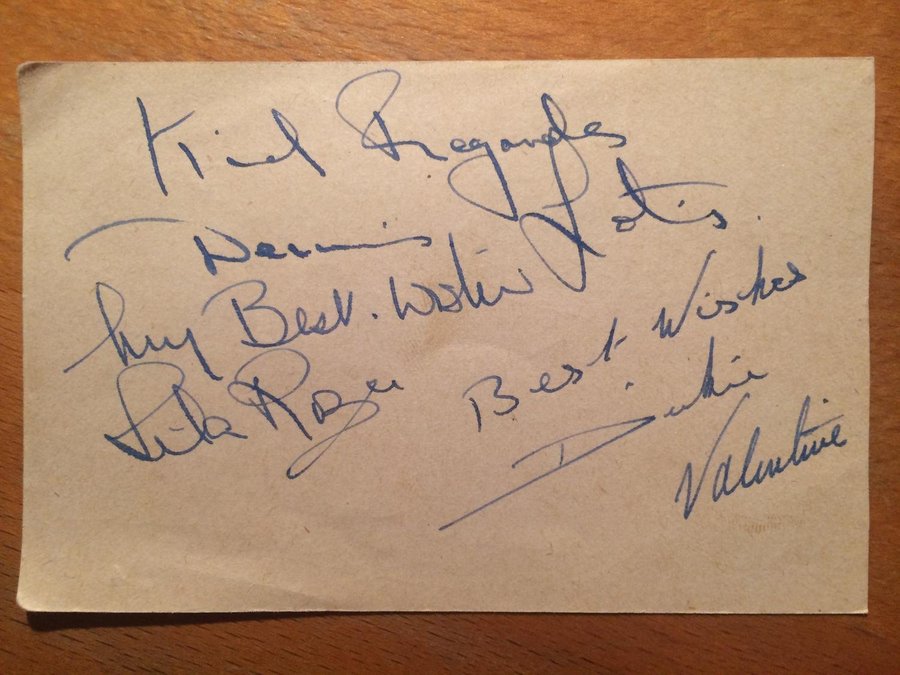 Kind Regards
Dennis Lotis.
My Best. Wishes
Lita Roza
Best Wishes
Dickie
Valentine